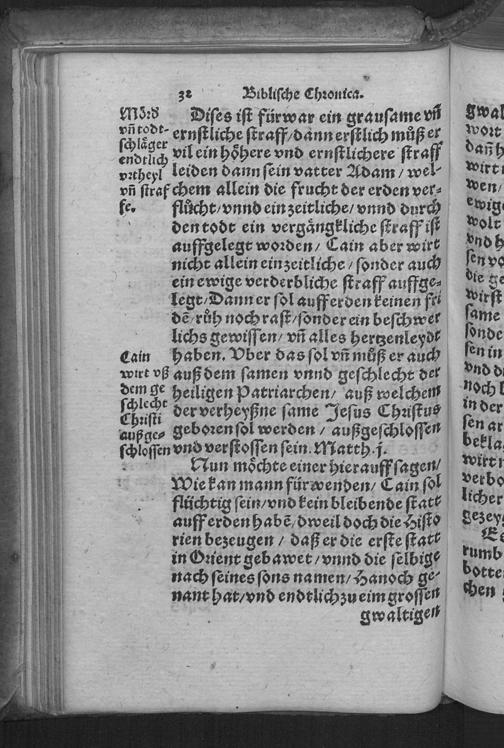 32 Biblische Chronica.
Mörd
vñ todt-
schläger
endtlich
vrtheyl
vñ straf
fe.
Dises ist fürwar ein grausame vñ
ernstliche straff/dann erstlich müß er
vil ein höhere vnd ernstlichere straff
leiden dann sein vatter Adam/ wel-
chem allein die frucht der erden ver-
flücht/vnnd ein zeitliche/vnnd durch
den todt ein vergängkliche straff ist
auffgelegt worden/ Cain aber wirt
nicht allein ein zeitliche/sonder auch
ein ewige verderbliche straff auffge-
legt/Dann er sol auff erden keinen fri
dẽ/rüh noch rast/sonder ein beschwer
lichs gewissen/vñ alles hertzenleydt
haben. Vber das sol vñ müß er auch
auß dem samen vnnd geschlecht der
heiligen Patriarchen/ auß welchem
der verheyßne same Jesus Christus
geboren sol werden/ außgeschlossen
vnd verstossen sein. Matth. j.
Cain
wirt vß
dem ge
schlecht
Christi
außge-
schlossen
Nun möchte einer hierauff sagen/
Wie kan mann fürwenden/ Cain sol
flüchtig sein/vnd kein bleibende statt
auff erden habẽ/dweil doch die Histo
rien bezeugen/ daß er die erste statt
in Orient gebawet/vnnd die selbige
nach seines sons namen/Hanoch ge-
nant hat/vnd endtlich zu eim grossen
gwaltigen